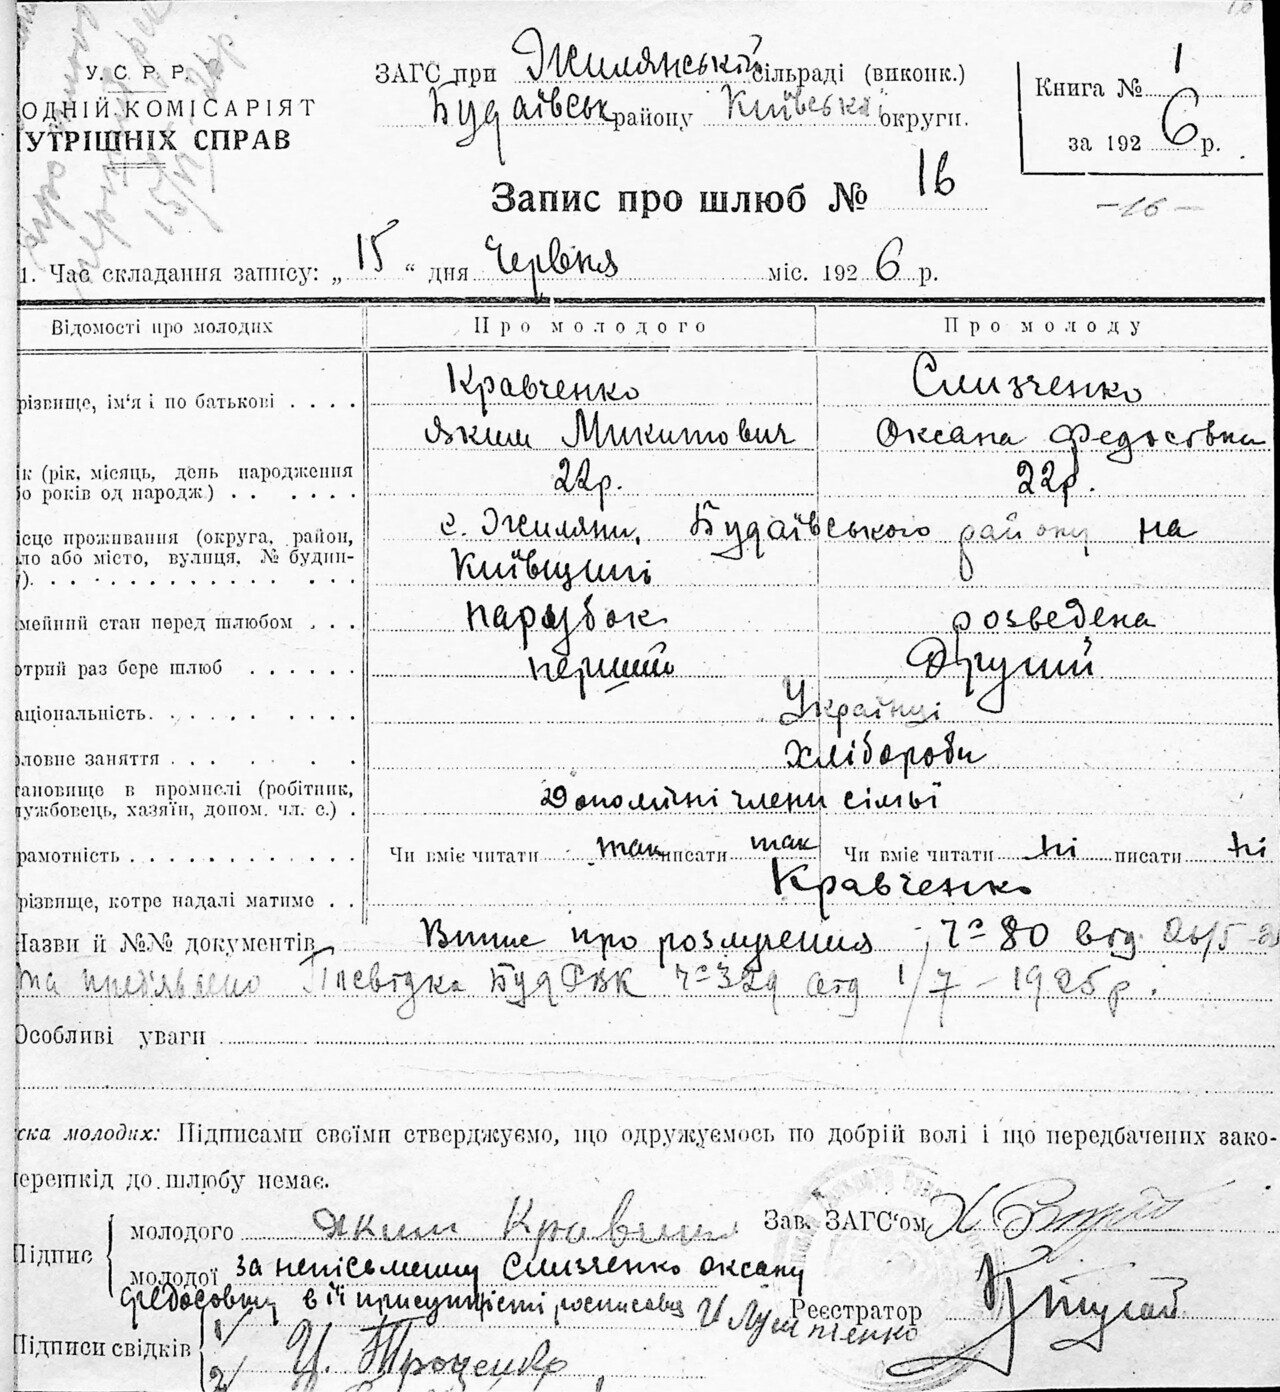 У. С. Р. Р.
ОДНІЙ КОМІСАРІЯТ
УТРІШНІХ СПРАВ
ЗАГС при Жилянській сільраді (виконк.)
Будаївськ району Київської округи.
Книга № 1
за 1926 р.
Запис про шлюб № 16
- 16 -
1. Час складання запису: „ 15 “ дня Червня міс. 1926 р.
Відомості про молодих
Про молодого
Про молоду
різвище, ім'я і по батькові . . . .
Кравченко
Слизченко
Яким Микитович
Оксана Федосівна
ік (рік, місяць, день народження
о років од народж.) . . . . . .
22р.
22р.
ісце проживання (округа, район,
ло або місто, вулиця, № будин-
с. Жиляни, Будаївського району на
Київщині
мейний стан перед шлюбом . . .
парубок
розведена
отрий раз бере шлюб . . . . . .
перший
Другий
аціональність. . . . . . . . .
Українці
ловне заняття . . . . . . .
хлібороби
тановище в промислі (робітник,
ужбовець, хазяїн, допом. чл. с.) .
Допомічні члени сімьї
рамотність . . . . . . . . . . .
Чи вміє читати так писати так
Чи вміє читати ні писати ні
різвище, котре надалі матиме . .
Кравченко
Назви й №№ документів Випис про розлучення ч. 80 від 26/5
та пред'явлено Посвідка БудРВК ч. 329 від 1/7 - 1925р.
Особливі уваги
ска молодих: Підписами своїми стверджуємо, що одружуємось по добрій волі і що передбачених зако-
ерешкід до шлюбу немає.
Підпис
молодого Яким Кравченко
Зав. ЗАГС'ом
молодої за неписьменну Слизченко Оксану
Федосовну в її присутності росписавсь
Реєстратор
Підписи свідків
1/
2/ И. Троценко